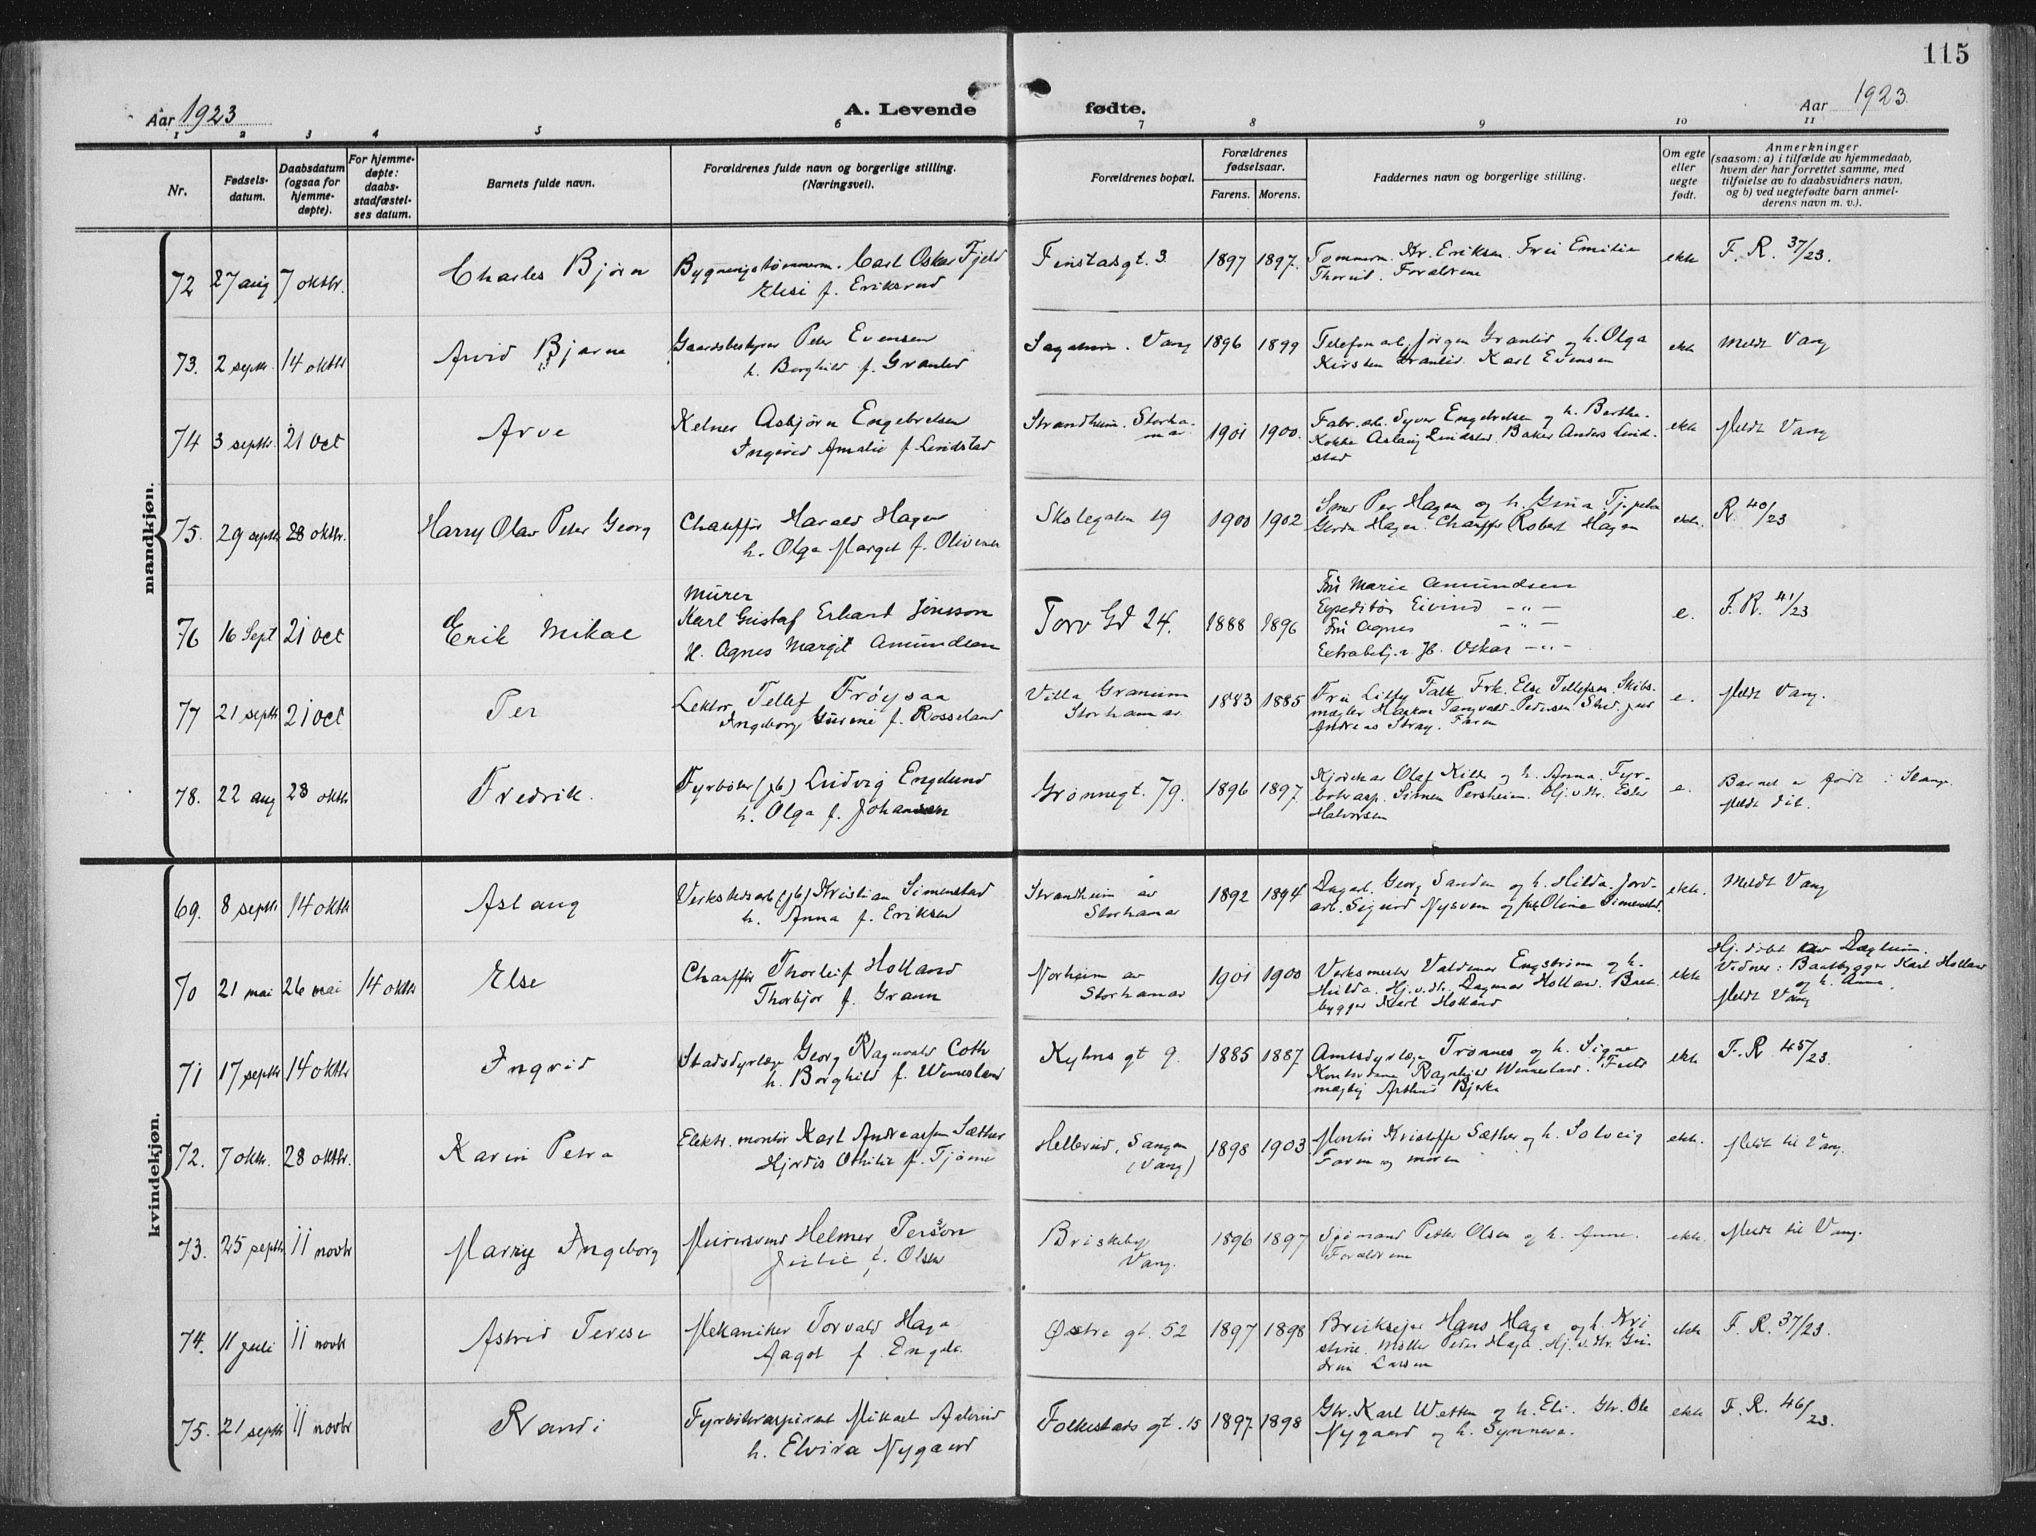 115
Aar 1923
A. Levende fødte.
Aar 1923
1 2 3 4 5 6 7 8 9 10 11
Nr.
Fødsels-
datum.
Daabsdatum
(ogsaa for
hjemme-
døpte).
For hjemme-
døpte:
daabs-
stadfæstel-
ses datum.
Barnets fulde navn.
Forældrenes fulde navn og borgerlige stilling.
(Næringsvei).
Forældrenes bopæl.
Forældrenes
fødselsaar.
Farens. Morens.
Faddernes navn og borgerlige stilling.
Om egte
eller
uegte
født.
Anmerkninger
(saasom: a) i tilfælde av hjemmedaab,
hvem der har forrettet samme, med
tilføielse av to daabsvidners navn,
og b) ved uegtefødte barn anmel-
derens navn m. v.).
mandkjøn.
72 27 aug 7 oktbr. Charles Bjørn Carl Oskar Fjeld
Elise f. Eriksrud
Finstadsgt. 3 1897 1897. Tømmerm. Kr. Eriksen. Frü Emilie
Thorud. Forældrene
ekte F. R. 37/23.
73. 2 septbr. 14 oktbr Arvid Bjarne Gaardsbestyrer Peter Evensen
h. Borghild f. Granlid
Vang 1896 1899 Telefonarb. Jørgen Granlid og h. Olga
Kirsten Granlid. Karl Evensen
ekte Meldt Vang
74 3 septbr. 21 oct Arve Kelner Asbjørn Engebretsen
Ingerid Amalie f. Lindstad
Strandheim. Storha-
mar
1901 1900. Fabr. arb. Syver Engebretsen og h. Berthe.
Kokke Aslaug Lindstad. Baker Anders Lind-
stad
ekte Meldt Vang
75. 29 septbr 28 oktbr. Harry Olav Peter Georg Chauffør Harald Hagen
h. Olga Margit f. Olivensen
Skolegaten 19 1900 1902 Per Hagen og h. Gina
Gerda Hagen. Chauffør Robert Hagen
ekte. R. 40/23
76 16 Sept 21 oct Erik Mikal Murer
Karl Gustaf Erhard Jonsson
H. Agnes Margit Amundsen
Torv Gd 24. 1888 1896 Frü Marie Amundsen
Expeditør Eivind - „ -
Frü Agnes - „ -
Oskar - „ -
e. F. R. 41/23
77 21 septbr 21 oct Per Lektor Tellef Frøysaa
Ingeborg Gurine f. Rosseland
Villa Granum
Storhamar
1883 1885 Frü Lilly Falk Frk. Else Tellefsen. Skibs-
mægler Haakon Tangvald Pedersen Stud. jur
Andreas Stray. Faren
e. Meldt Vang.
78. 22 aug 28 oktbr Fredrik. Fyrbøter (jb) Ludvig Englund
h. Olga f. Johansen
Grønnegt. 79. 1896 1897. Olaf Kilde og h. Anna. Fyr-
bøterasp. Simen Persheim. Hj. v. dr. Ester
Halvorsen
e. Barnet er født i Stange.
Meldt dit.
kvindekjøn.
69. 8 septbr 14 oktbr Aslaug Verkstedsarb (jb) Kristian Simenstad
h. Anna f. Eriksen
Strandheim av
Storhamar
1892 1894 Dagarb. Georg Sanden og h. Hilda. Jord-
arb. Sigurd Nysven og frk Oline Simenstad.
ekte. Meldt Vang
70 21 mai 26 mai 14 oktbr Else Chauffør Thorleif Holland
Thorbjør f. Grann
Norheim av
Storhamar
1901 1900 Verksmester Valdemar Engstrøm og h.
Hilda. Hj. v. dr. Dagmar Holland. Baat-
bygger Karl Holland
ekte Hj. døbt av
Vidner: Baatbygger Karl Holland
og h. Anna.
Meldt Vang
71 17 septbr 14 oktbr Ingrid Stadsdyrlæge Georg Ragnvald Coth
h. Borghild f. Wennesland
Kyhns gt 9. 1885 1887 Amtsdyrlæge Trønnes og h. Signe
Kontordame Ragnhild Wennesland.
Arthur Bjerke
ekte F. R. 45/23.
72. 7 oktbr. 28 oktbr. Karin Petra Elektr. montør Karl Andreassen Sæther
Hjørdis Othilie f. Tjøme
Hellerud, Sangen
(Vang)
1898 1903 Montør Kristoffer Sæther og h. Solveig
Faren og moren
ekte. Meldt til Vang.
73. 25 septbr 11 novbr Marry Ingeborg Murersvend Helmer Persson
Julie f. Olsen
Briskeby
Vang.
1896 1897 Sjømand Petter Olsen og h. Anne.
Forældrene
ekte. Meldt til Vang.
74. 11 juli 11 novbr Astrid Terese Mekaniker Torvald Haga
Aagot f. Engele
Østre gt. 52 1897 1898 Hans Haga og h. Kri
stine. Møller Peter Haga. Hj. v. dr. Gu-
drun Larsen
ekte F. R. 37/23.
75. 21 septbr 11 novbr Randi Fyrbøteraspirant Mikael Aalerud
h. Elvira Nygaard
Folkestads gt. 15 1897 1898 Gbr. Karl Wetten og h. Eli. Gbr. Ole
Nygaard og h. Synneva.
ekte F. R. 46/23.